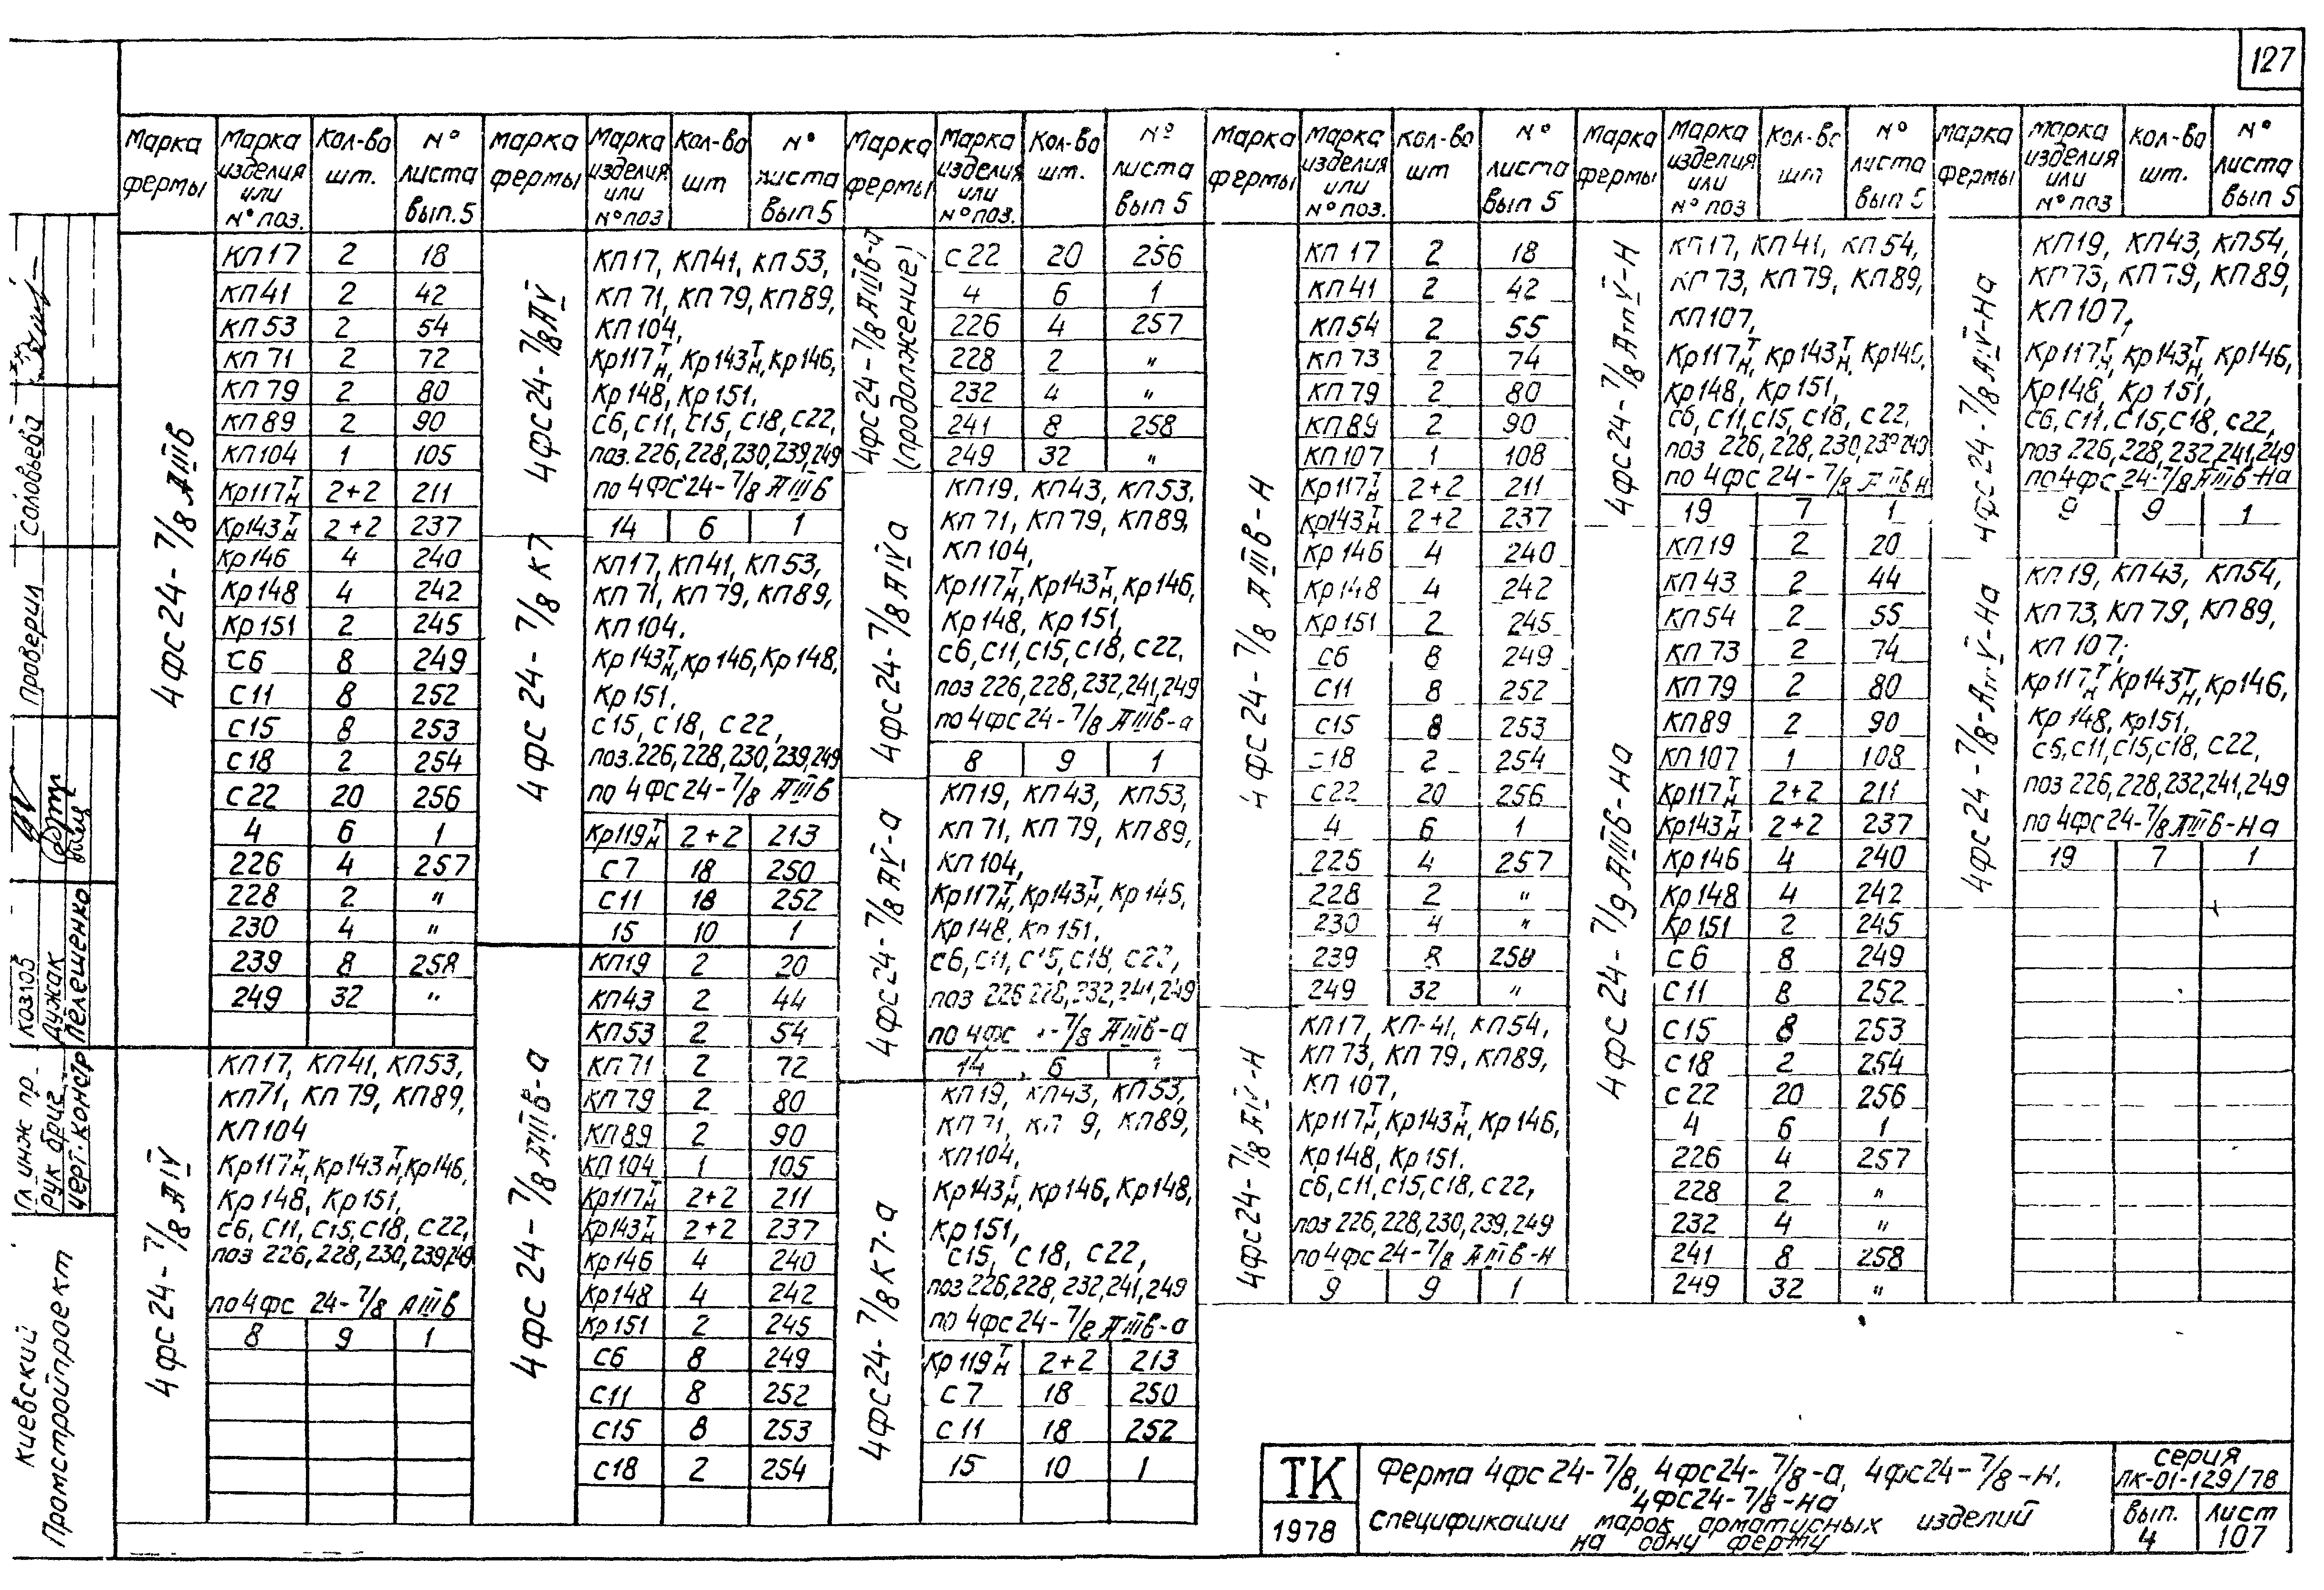 127
Марка фермы | Марка изделия или № поз. | Кол-во шт. | № листа вып. 5
4ФС24-7/8 АIIIв
КП17 2 18
КП41 2 42
КП53 2 54
КП71 2 72
КП79 2 80
КП89 2 90
КП104 1 105
Кр117т/н 2+2 211
Кр143т/н 2+2 237
Кр146 4 240
Кр148 4 242
Кр151 2 245
С6 8 249
С11 8 252
С15 8 253
С18 2 254
С22 20 256
4 6 1
226 4 257
228 2 "
230 4 "
239 8 258
249 32 "
4ФС24-7/8 АIV
КП17, КП41, КП53,
КП71, КП79, КП89,
КП104
Кр117т/н, Кр143т/н, Кр146,
Кр148, Кр151,
С6, С11, С15, С18, С22,
поз 226, 228, 230, 239, 249
по 4ФС 24-7/8 АIIIв
8 9 1
Марка фермы | Марка изделия или № поз | Кол-во шт | № листа вып 5
4ФС24-7/8 АV
КП17, КП41, КП53,
КП71, КП79, КП89,
КП104,
Кр117т/н, Кр143т/н, Кр146,
Кр148, Кр151,
С6, С11, С15, С18, С22,
поз. 226, 228, 230, 239, 249
по 4ФС24-7/8 АIIIв
14 6 1
4ФС 24-7/8 К7
КП17, КП41, КП53,
КП71, КП79, КП89,
КП104.
Кр143т/н, Кр146, Кр148,
Кр151.
С15, С18, С22,
поз. 226, 228, 230, 239, 249
по 4ФС24-7/8 АIIIв
Кр119т/н 2+2 213
С7 18 250
С11 18 252
15 10 1
4ФС 24-7/8 АIIIв-а
КП19 2 20
КП43 2 44
КП53 2 54
КП71 2 72
КП79 2 80
КП89 2 90
КП104 1 105
Кр117т/н 2+2 211
Кр143т/н 2+2 237
Кр146 4 240
Кр148 4 242
Кр151 2 245
С6 8 249
С11 8 252
С15 8 253
С18 2 254
Марка фермы | Марка изделия или № поз. | Кол-во шт. | № листа вып 5
4ФС24-7/8 АIIIв-а (продолжение)
С22 20 256
4 6 1
226 4 257
228 2 "
232 4 "
241 8 258
249 32 "
4ФС24-7/8 АIVа
КП19, КП43, КП53,
КП71, КП79, КП89,
КП104,
Кр117т/н, Кр143т/н, Кр146,
Кр148, Кр151,
С6, С11, С15, С18, С22,
поз 226, 228, 232, 241, 249
по 4ФС24-7/8 АIIIв-а
8 9 1
4ФС24-7/8 АV-а
КП19, КП43, КП53,
КП71, КП79, КП89,
КП104,
Кр117т/н, Кр143т/н, Кр146,
Кр148, Кр151,
С6, С11, С15, С18, С22,
поз 226 228, 232, 241, 249
по 4ФС -7/8 АIIIв-а
14 6
4ФС24-7/8 К7-а
КП19, КП43, КП53,
КП71, КП 9, КП89,
КП104,
Кр143т/н, Кр146, Кр148,
Кр151,
С15, С18, С22,
поз 226, 228, 232, 241, 249
по 4ФС24-7/8 АIIIв-а
Кр119т/н 2+2 213
С7 18 250
С11 18 252
15 10 1
Марка фермы | Марка изделия или № поз. | Кол-во шт | № листа вып 5
4ФС24-7/8 АIIIв-Н
КП17 2 18
КП41 2 42
КП54 2 55
КП73 2 74
КП79 2 80
КП89 2 90
КП107 1 108
Кр117т/н 2+2 211
Кр143т/н 2+2 237
Кр146 4 240
Кр148 4 242
Кр151 2 245
С6 8 249
С11 8 252
С15 8 253
С18 2 254
С22 20 256
4 6 1
226 4 257
228 2 "
230 4 "
239 8 258
249 32 "
4ФС24-7/8 АIV-Н
КП17, КП-41, КП54,
КП73, КП79, КП89,
КП107,
Кр117т/н, Кр143т/н, Кр146,
Кр148, Кр151.
С6, С11, С15, С18, С22,
поз 226, 228, 230, 239, 249
по 4ФС24-7/8 АIIIв-Н
9 9 1
Марка фермы | Марка изделия или № поз | Кол-во шт | № листа вып 5
4ФС24-7/8 АтV-Н
КП17, КП41, КП54,
КП73, КП79, КП89,
КП107,
Кр117т/н, Кр143т/н, Кр146,
Кр148, Кр151,
С6, С11, С15, С18, С22,
поз 226, 228, 230, 239 249
по 4ФС24-7/8 АIIIв-Н
19 7 1
4ФС24-7/8 АIIIв-На
КП19 2 20
КП43 2 44
КП54 2 55
КП73 2 74
КП79 2 80
КП89 2 90
КП107 1 108
Кр117т/н 2+2 211
Кр143т/н 2+2 237
Кр146 4 240
Кр148 4 242
Кр151 2 245
С6 8 249
С11 8 252
С15 8 253
С18 2 254
С22 20 256
4 6 1
226 4 257
228 2 "
232 4 "
241 8 258
249 32 "
Марка фермы | Марка изделия или № поз | Кол-во шт. | № листа вып 5
4ФС24-7/8 АIV-На
КП19, КП43, КП54,
КП73, КП79, КП89,
КП107,
Кр117т/н, Кр143т/н, Кр146,
Кр148, Кр151,
С6, С11, С15, С18, С22,
поз 226, 228, 232, 241, 249
по 4ФС24-7/8 АIIIв-На
9 9 1
4ФС24-7/8-АтV-На
КП19, КП43, КП54,
КП73, КП79, КП89,
КП107;
Кр117т/н Кр143т/н, Кр146,
Кр148, Кр151,
С6, С11, С15, С18, С22,
поз 226, 228, 232, 241, 249
по 4ФС24-7/8 АIIIв-На
19 7 1
ТК
1978
Ферма 4ФС24-7/8, 4ФС24-7/8-а, 4ФС24-7/8-Н.
4ФС24-7/8-На
спецификации марок арматурных изделий
на одну ферму
серия
ПК-01-129/78
вып. 4
лист 107
Киевский
Промстройпроект
Гл инж пр.
Рук бриг.
Черт. констр
Дужак
Пелешенко
проверил
Соловьева